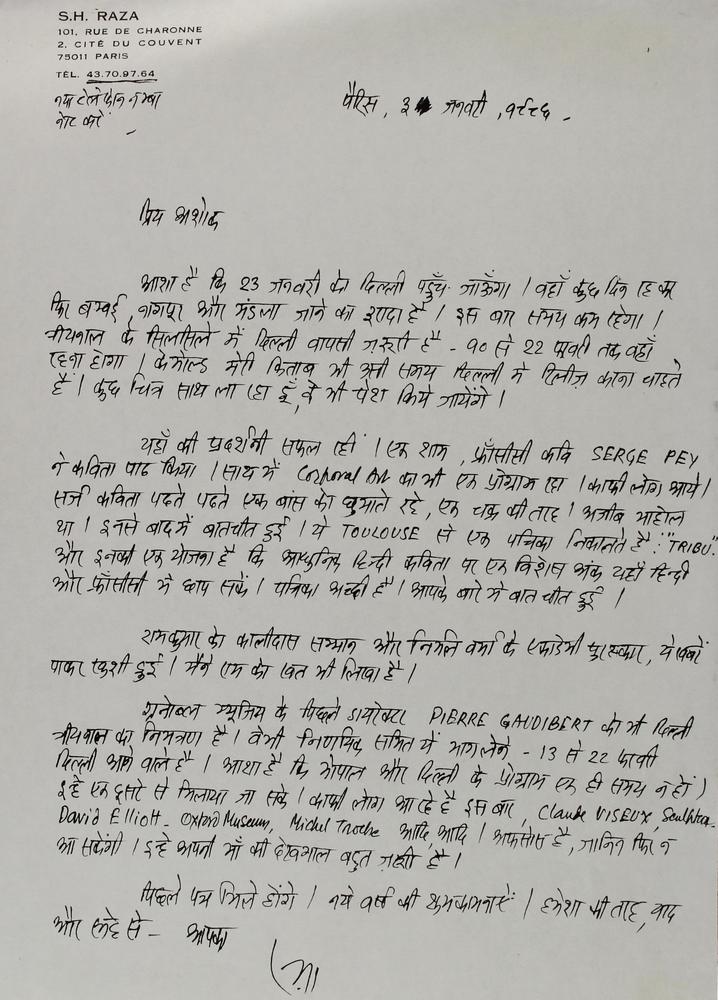 S.H. RAZA
101, RUE DE CHARONNE
2, CITÉ DU COUVENT
75011 PARIS
TÉL. 43.70.97.64
नया टेलीफोन नम्बर
नोट करें
पैरिस, 3 जनवरी, १९८६ -
प्रिय अशोक
आशा है कि 23 जनवरी को दिल्ली पहुँच जाऊँगा । वहाँ कुछ दिन रह कर
फिर बम्बई, नागपुर और मंडला जाने का इरादा है । इस बार समय कम रहेगा ।
त्रीयनाल के सिलसिले में दिल्ली वापसी ज़रूरी है - १० से 22 फरवरी तक वहाँ
रहना होगा । केमोल्ड मेरी किताब भी उसी समय दिल्ली में रिलीज़ करना चाहते
है । कुछ चित्र साथ ला रहा हूँ, वे भी पेश किये जायेंगे ।
यहाँ की प्रदर्शनी सफल रही । एक शाम, फ्राँसीसी कवि SERGE PEY
ने कविता पाठ किया । साथ में Corporal Art का भी एक प्रोग्राम रहा । काफी लोग आये ।
सर्ज कविता पढते पढते एक बांस को घुमाते रहे, एक चक्र की तरह । अजीब माहोल
था । इनसे बाद में बातचीत हुई । ये TOULOUSE से एक पत्रिका निकालते है : "TRIBU".
और इनकी एक योजना है कि आधुनिक हिन्दी कविता पर एक विशेष अंक यहाँ हिन्दी
और फ्राँसीसी में छाप सकें । पत्रिका अच्छी है । आपके बारे में बात चीत हुई ।
रामकुमार को कालीदास सम्मान और निर्मल वर्मा के एकाडेमी पुरस्कार, ये खबरें
पाकर खुशी हुई । मैंने राम को खत भी लिखा है ।
ग्रनोब्ल म्यूज़ियम के पिछले डायरेक्टर PIERRE GAUDIBERT को भी दिल्ली
त्रीयनाल का निमंत्रण है । वे भी निर्णायक समिति में भाग लेने - 13 से 22 फरवरी
दिल्ली आने वाले है । आशा है कि भोपाल और दिल्ली के प्रोग्राम एक ही समय न हों )
इन्हे एक दूसरे से मिलाया जा सके । काफी लोग आ रहे है इस बार, Claude VISEUX, Sculpteur.
David Elliott - Oxford Museum, Michel Troche आदि, आदि । अफसोस है, जानिन फिर न
आ सकेंगी । इन्हे अपनी माँ की देखभाल बहुत ज़रूरी है ।
पिछले पत्र मिले होंगे । नये वर्ष की शुभकामनाएँ । हमेशा की तरह, याद
और स्नेह से - आपका